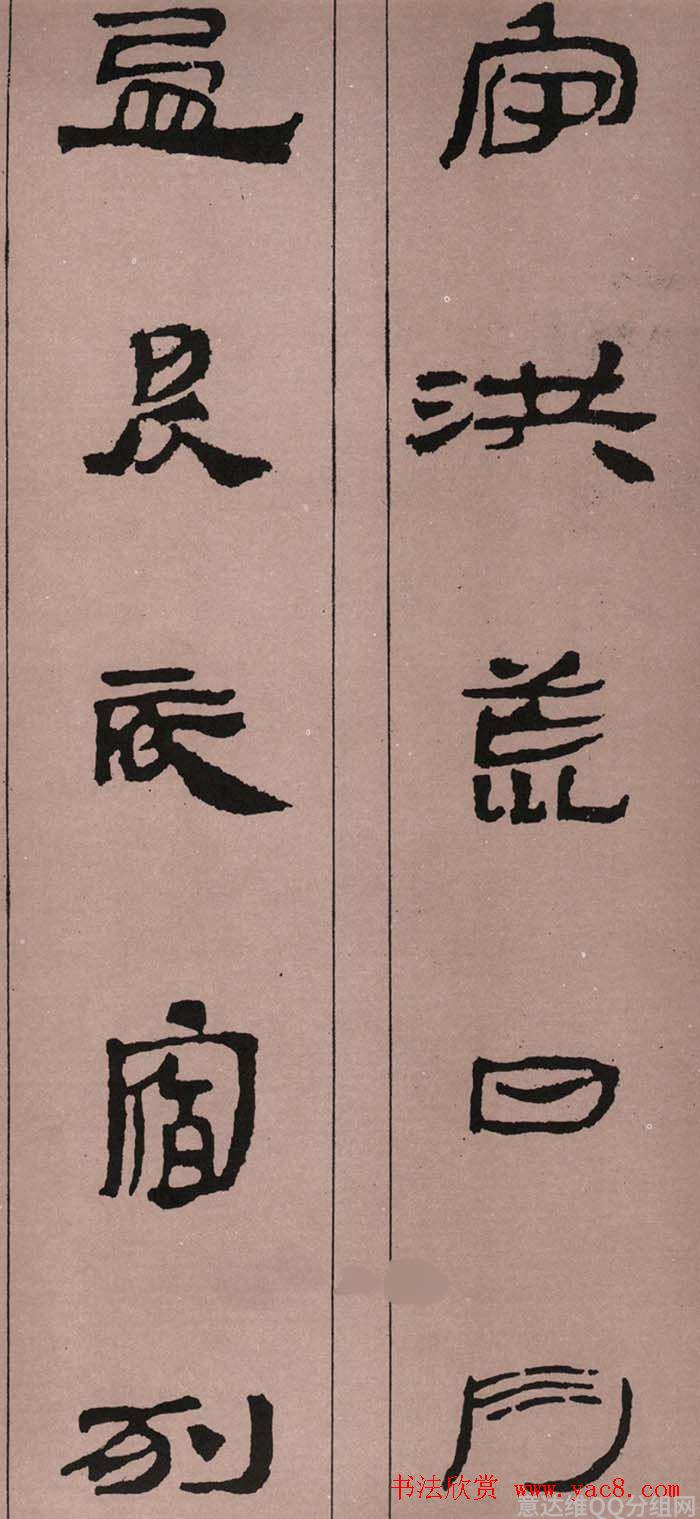 宙洪荒日月
盈昃辰宿列
书法欣赏 www.yac8.com
意达维QQ分组网